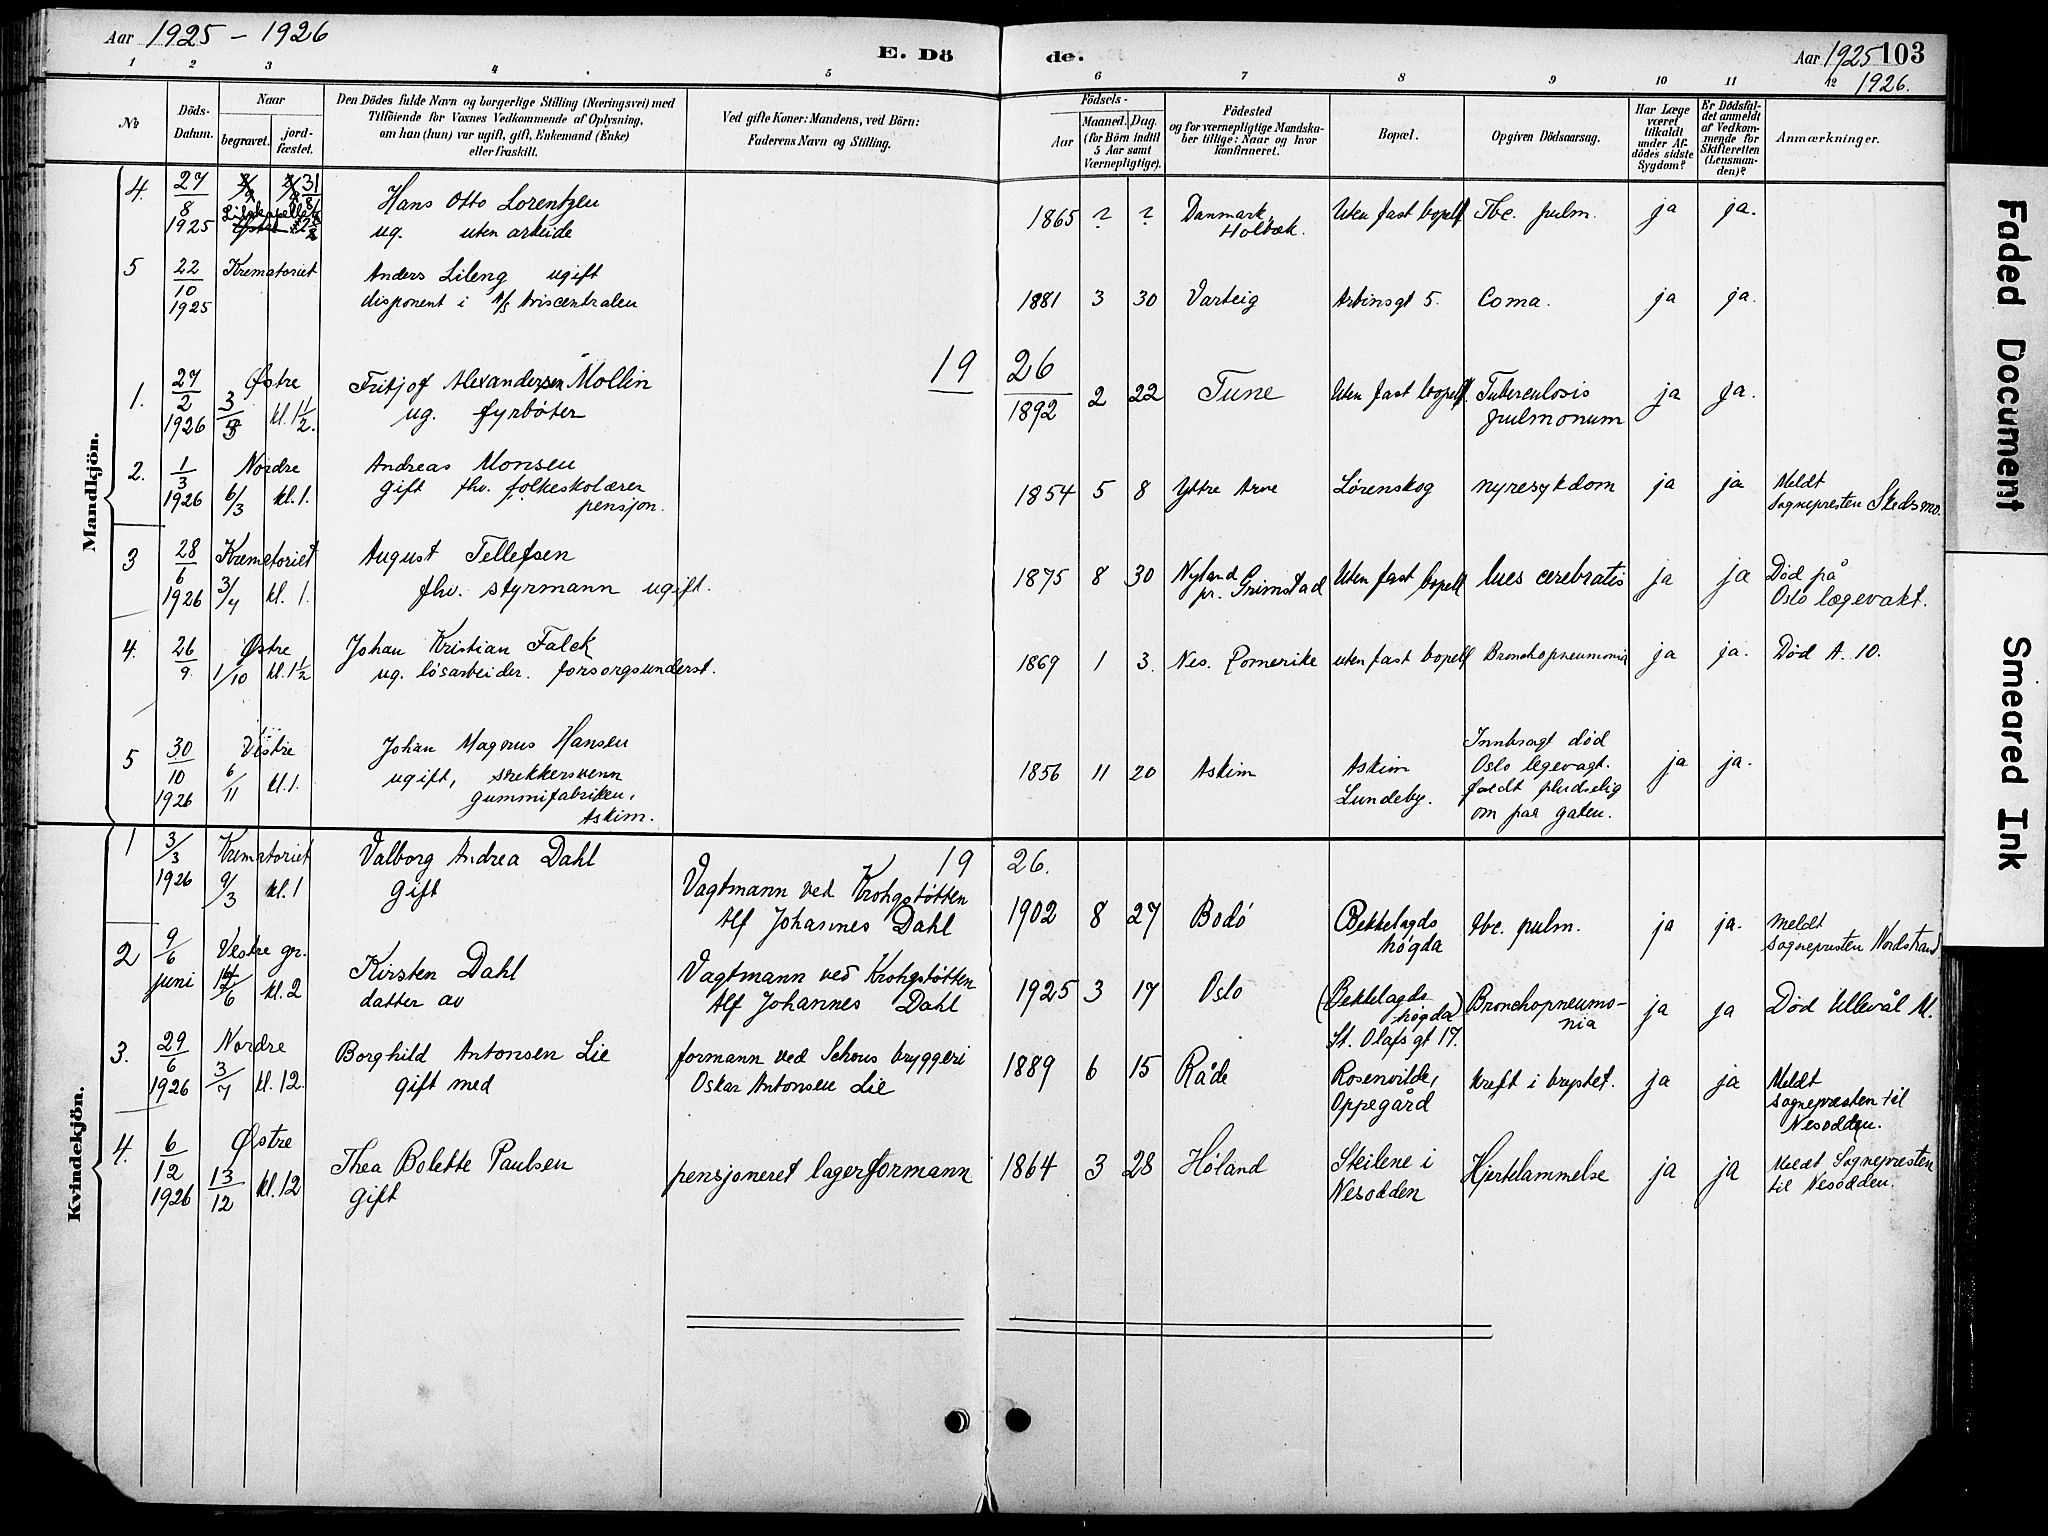 Aar 1925 - 1926
E. Dö
de.
Aar 1925 103
1926.
1 2 3 4 5 6 7 8 9 10 11 12
No
Döds-
Datum.
Naar
begravet.
jord-
fæstet.
Den Dödes fulde Navn og borgerlige Stilling (Næringsvei) med
Tilföiende for Voxnes Vedkommende af Oplysning,
om han (hun) var ugift, gift, Enkemand (Enke)
eller fraskilt.
Ved gifte Koner: Mandens, ved Börn:
Faderens Navn og Stilling.
Födsels-
Aar
Maaned. Dag.
(for Börn indtil
5 Aar samt
Værnepligtige).
Födested
og for værnepligtige Mandska-
ber tillige: Naar og hvor
konfirmeret.
Bopæl.
Opgiven Dödsaarsag.
Har Læge
været
tilkaldt
under Af-
dödes sidste
Sygdom?
Er Dödsfal-
det anmeldt
af Vedkom-
mende for
Skifteretten
(Lensman-
den)?
Anmærkninger.
Mandkjön.
4. 27/8 1925 31/8
Hans Otto Lorentzen
ug. uten arbeide
1865 ? ? Danmark, Holbæk. Uten fast bopell Tbc. pulm. ja ja.
5 22/10 1925 Krematoriet
Anders Lileng ugift
disponent i A/S Aviscentralen
1881 3 30 Varteig Arbinsgt 5. Coma. ja ja.
1926
1. 27/2 1926 Østre 3/3 kl. 1 1/2.
Fritjof Alexandersen Mollin
ug. fyrbøter
1892 2 22 Tune Uten fast bopell. Tuberculosis
pulmonum ja ja.
2. 1/3 1926 Nordre 6/3 kl. 1.
Andreas Monsen
gift fhv. folkeskolærer
pensjon.
1854 5 8 Yttre Arne Lørenskog nyresykdom ja ja Meldt
Sognepresten Skedsmo.
3 28/6 1926 Krematoriet 3/7 kl. 1.
August Tellefsen
fhv. styrmann ugift.
1875 8 30 Nyland
pr. Grimstad Uten fast bopell lues cerebratis ja ja Død på
Oslo lægevakt.
4. 26/9. Østre 1/10 kl. 1 1/2
Johan Kristian Falck
ug. løsarbeider. forsorgsunderst.
1869 1 3. Nes. Romerike uten fast bopell Bronchopneumonia ja ja. Død A. 10.
5 30/10 1926 Vestre 6/11 kl. 1.
Johan Magnus Hansen
ugift, snekkersvenn
gummifabriken,
Askim.
1856 11 20 Askim Askim
Lundeby. Innbragt død
Oslo legevagt.
faldt pludselig
om paa gaten. ja ja.
Kvindekjön.
1926.
1 3/3 1926 Krematoriet 9/3 kl. 1
Valborg Andrea Dahl
gift
Vagtmann ved Krohgstøtten
Alf Johannes Dahl
1902 8 27 Bodø Bekkelagds
høgda tbc. pulm. ja ja. meldt
sognepresten Nordstrand
2 9/6 juni Vestre gr. 12/6 kl. 2
Kirsten Dahl
datter av
Vagtmann ved Krohgstøtten
Alf Johannes Dahl
1925 3 17 Oslo (Bekkelagds
høgda)
St. Olafs gt 17. Bronchopneumo-
nia ja ja Død Ullevål M.
3. 29/6 1926 Nordre 3/7 kl. 12.
Borghild Antonsen Lie
gift med
formann ved Schous bryggeri
Oskar Antonsen Lie
1889 6 15 Råde Rosenvilde,
Oppegård kreft i brystet. ja ja Meldt
sognepræsten til
Nesodden.
4. 6/12 1926 Østre 13/12 kl. 12
Thea Bolette Paulsen
gift
pensjoneret lagerformann
1864 3 28 Høland Skilene i
Nesodden Hjertelammelse ja ja Meldt Sognepresten
til Nesodden.
Faded Document
Smeared Ink